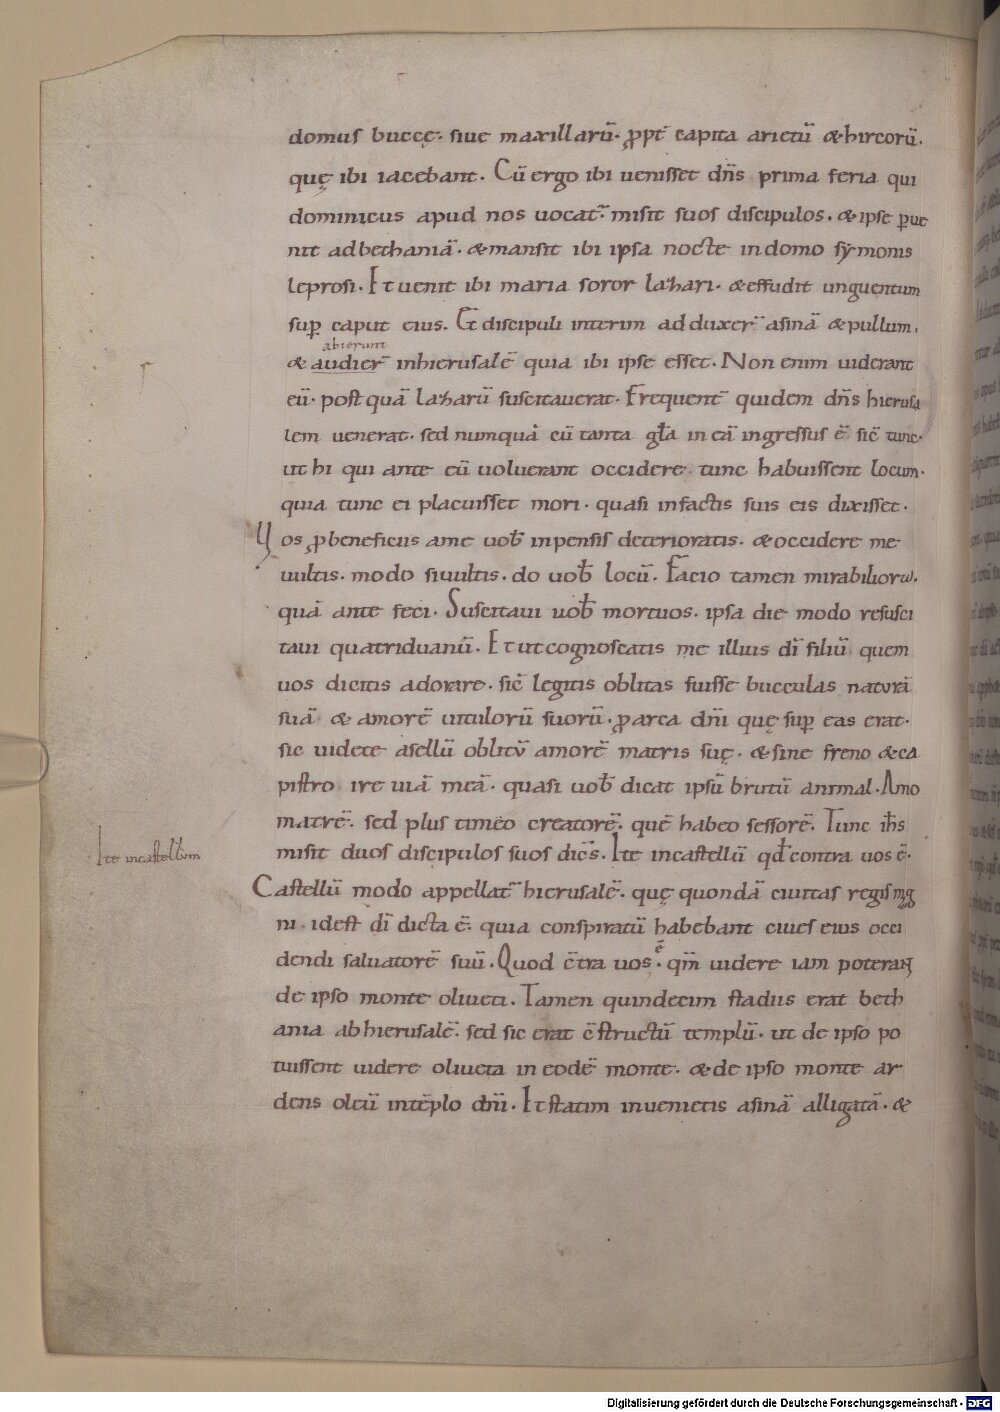 domus buccę. siue maxillarū. ꝓpt̄ capita arietū & hircorū.
quę ibi iacebant. Cū ergo ibi uenisset dn̄s prima feria qui
dominicus apud nos uocat᷑. misit suos discipulos. & ipse ꝑue
nit ad bethaniā. & mansit ibi ipsa nocte in domo symonis
leprosi. Et uenit ibi maria soror lazhari. & effudit unguentum
suꝑ caput eius. Et discipuli interim ad duxer̄ asinā & pullum.
abierunt
& audier̄ in hierusalē quia ibi ipse esset. Non enim uiderant
eū. post quā lazharū suscitauerat. Frequent̄ quidem dn̄s hierusa
lem uenerat. sed numquā cū tanta gl̄a in eā ingressus ē sic̄ tunc.
ut hi qui ante eū uoluerant occidere tunc habuissent locum.
quia tunc ei placuisset mori. quasi in factis suis eis dixisset.
Vos ꝓ beneficiis a me uob̄ inpensis deterioratis. & occidere me
uultis. modo si uultis. do uob̄ locū. Facio tamen mirabiliorω.
quā ante feci. Suscitaui uob̄ mortuos. ipsa die modo resusci
taui quatriduanū. Et ut cognoscatis me illius dī filiū quem
uos dicitis adorare. sic̄ legitis oblitas fuisse bucculas naturā
suā & amorē uitulorū suorū. ꝓ arca dn̄i quę suꝑ eas erat.
sic uidete asellū oblitū amorē matris suę. & sine freno & ca
pistro ire uiā meā. quasi uob̄ dicat ipsū brutū animal. Amo
matrē. sed plus timeo creatorē. quē habeo sessorē. Tunc ih̄s
misit duos discipulos suos dic̄s. Ite in castellū qd̄ contra uos ē.
Ite in castellum
Castellū modo appellat᷑ hierusalē. quę quondā ciuitas regis mag
ni. id est dī dicta ē. quia conspiratū habebant ciues eius occi
dendi saluatorē suū. Quod c̄tra uos ē. qm̄ uidere iam poterant
de ipso monte oliueti. Tamen quindecim stadiis erat beth
ania ab hierusalē. sed sic erat c̄structū templū. ut de ipso po
tuissent uidere oliueta in eodē monte. & de ipso monte ar
dens oleū in tēplo dn̄i. Et statim inuenietis asinā alligatā. &
Digitalisierung gefördert durch die Deutsche Forschungsgemeinschaft - DFG